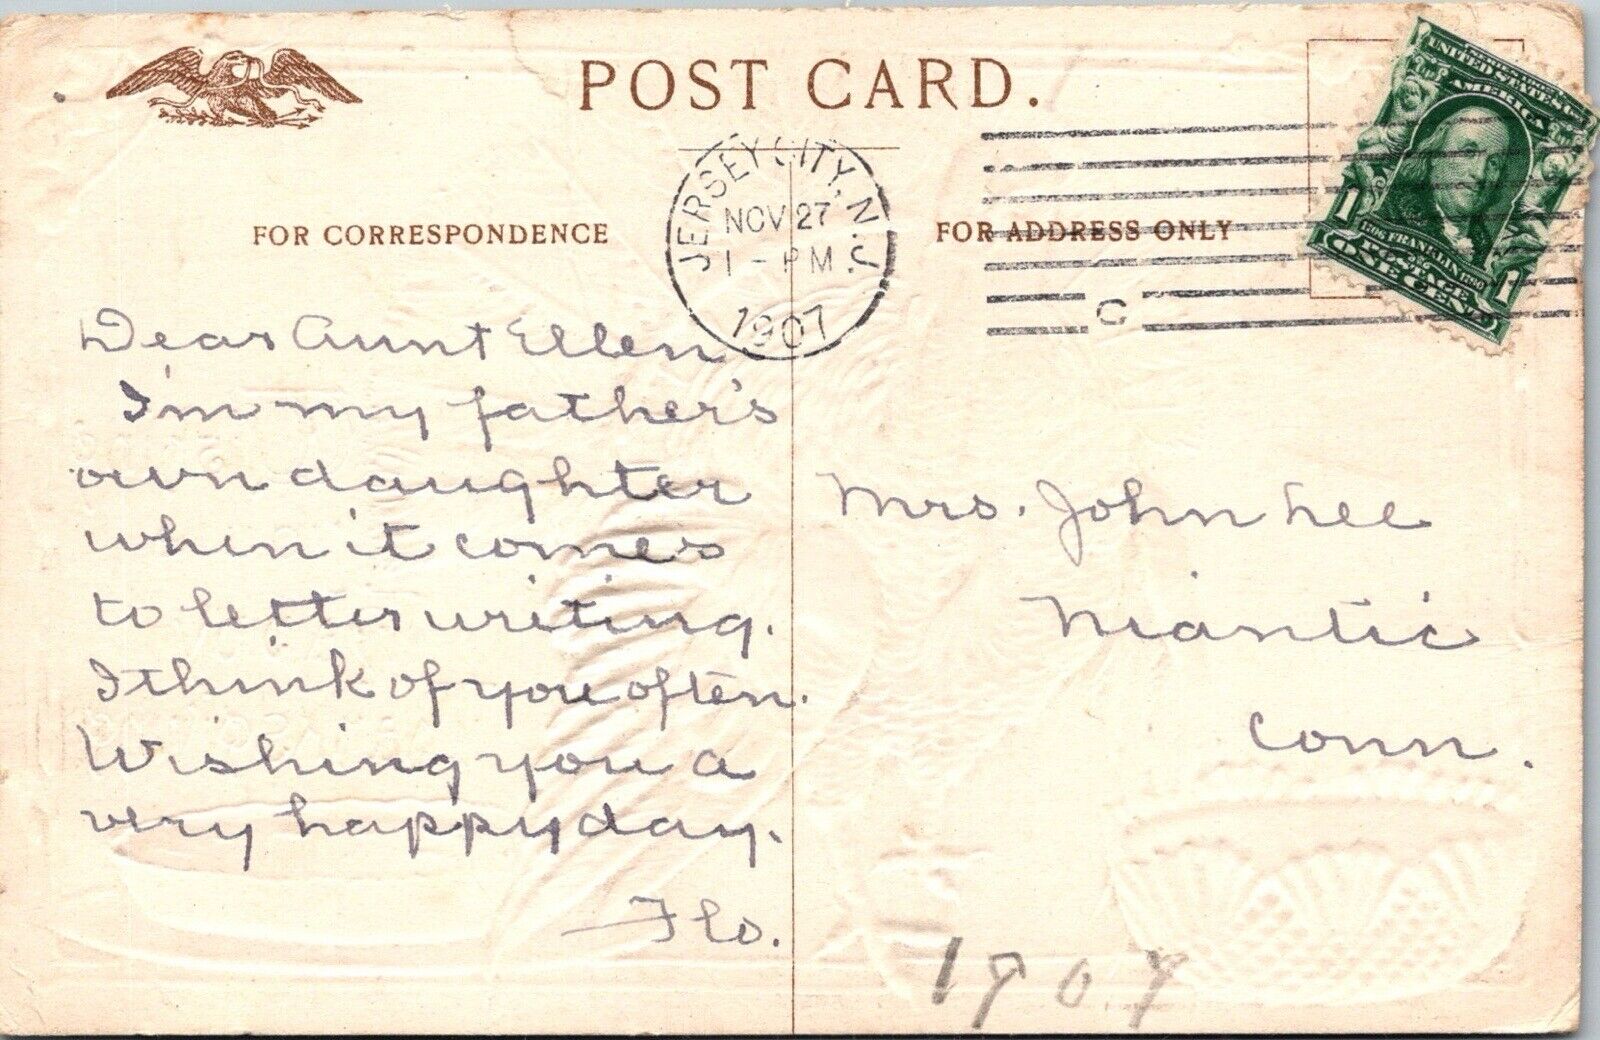 POST CARD.
FOR CORRESPONDENCE
FOR ADDRESS ONLY
JERSEY CITY, N.J.
NOV 27
1-PM
1907
C
UNITED STATES OF AMERICA
1
1
FRANKLIN
POSTAGE
ONE CENT
Dear Aunt Ellen
I'm my father's
own daughter
when it comes
to letter writing.
I think of you often.
Wishing you a
very happy day.
Flo.
Mrs. John Lee
Niantic
Conn.
1907